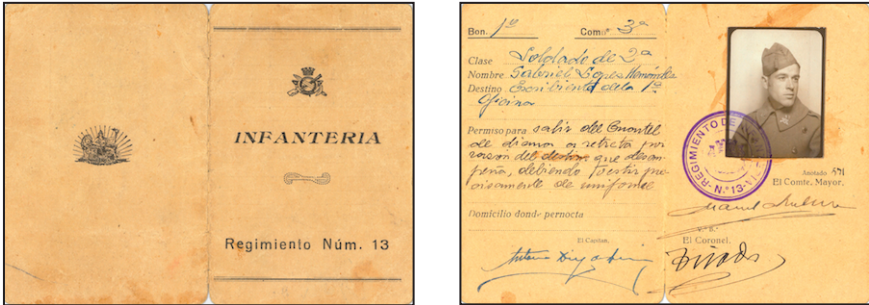 INFANTERIA
Regimiento Núm. 13
Bon. 1º Comp.ª 3ª
Clase Soldado de 2ª
Nombre Gabriel Lopez
Destino Escribiente de la 1ª
Oficina
Permiso para salir del Cuartel
de diana a retreta por
razon del destino que desem-
peña, debiendo vestir pre-
cisamente de uniforme
Domicilio donde pernocta
REGIMIENTO DE
N.º 13
Anotado 471
El Comte. Mayor,
El Capitan,
V.º B.º
El Coronel,